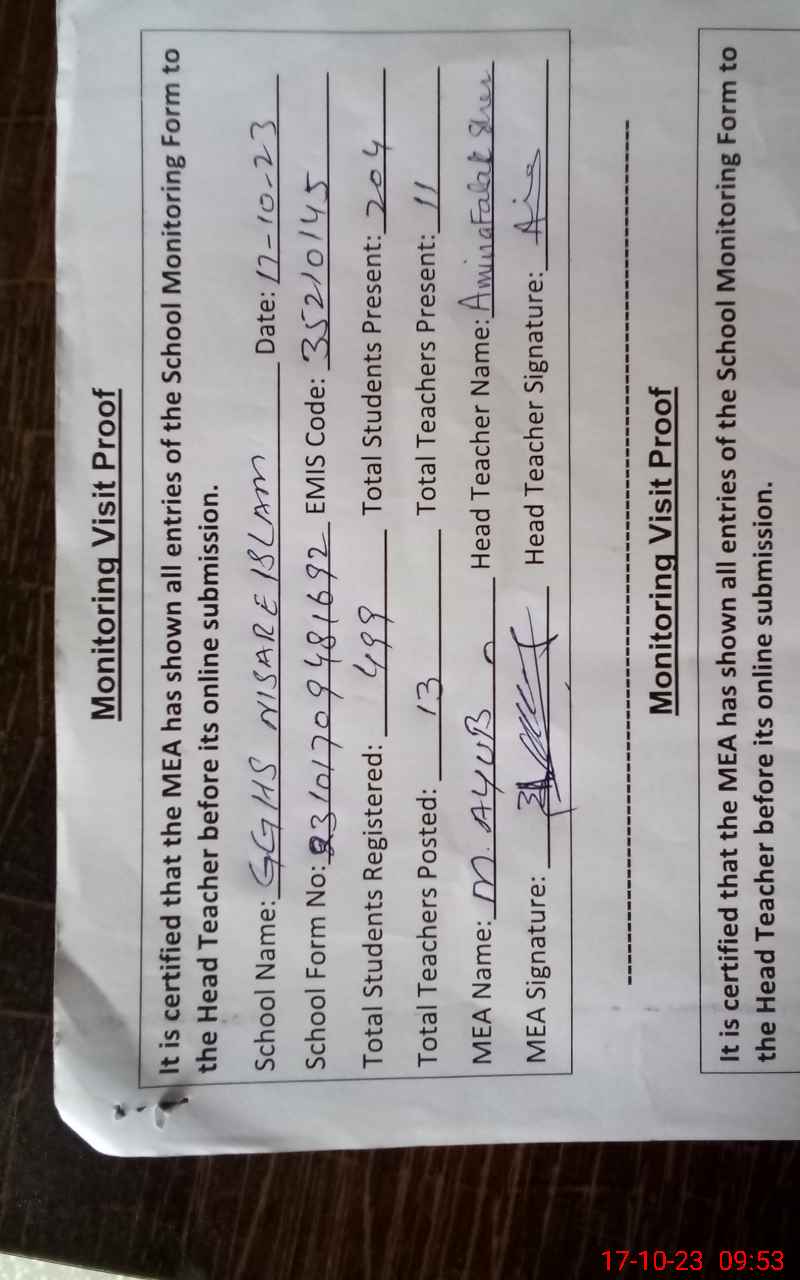 Monitoring Visit Proof
It is certified that the MEA has shown all entries of the School Monitoring Form to
the Head Teacher before its online submission.
School Name: GGHS NISARE ISLAM Date: 17-10-23
School Form No: 2310170948 1692 EMIS Code: 35210145
Total Students Registered: 499 Total Students Present: 204
Total Teachers Posted: 13 Total Teachers Present: 11
MEA Name: M. AYUB Head Teacher Name: Amina Falak Sher
MEA Signature: Head Teacher Signature:
Monitoring Visit Proof
It is certified that the MEA has shown all entries of the School Monitoring Form to
the Head Teacher before its online submission.
17-10-23 09:53